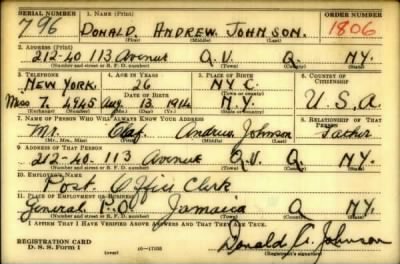 SERIAL NUMBER 1. NAME (Print) ORDER NUMBER
796 DONALD ANDREW JOHNSON 1806
(First) (Middle) (Last)
2. ADDRESS (Print)
212-40 113 Avenue Q.V. Q. N.Y.
(Number and street or R. F. D. number) (Town) (County) (State)
3. TELEPHONE 4. AGE IN YEARS 5. PLACE OF BIRTH 6. COUNTRY OF CITIZENSHIP
NEW YORK. 26 N.Y.C.
(Exchange) DATE OF BIRTH (Town or county)
7. 4965 Aug. 13 1914 N.Y. U.S.A.
(Number) (Mo.) (Day) (Yr.) (State or country)
7. NAME OF PERSON WHO WILL ALWAYS KNOW YOUR ADDRESS 8. RELATIONSHIP OF THAT PERSON
Mr. Olaf Andrew Johnson Father
(Mr., Mrs., Miss) (First) (Middle) (Last)
9. ADDRESS OF THAT PERSON
212-40. 113 Avenue Q.V. Q. N.Y.
(Number and street or R. F. D. number) (Town) (County) (State)
10. EMPLOYER'S NAME
Post Office Clerk
11. PLACE OF EMPLOYMENT OR BUSINESS
General P.O. Jamaica Q N.Y.
(Number and street or R. F. D. number) (Town) (County) (State)
I AFFIRM THAT I HAVE VERIFIED ABOVE ANSWERS AND THAT THEY ARE TRUE.
REGISTRATION CARD
D. S. S. Form 1 (over) 16-17105 Donald A. Johnson
(Registrant's signature)